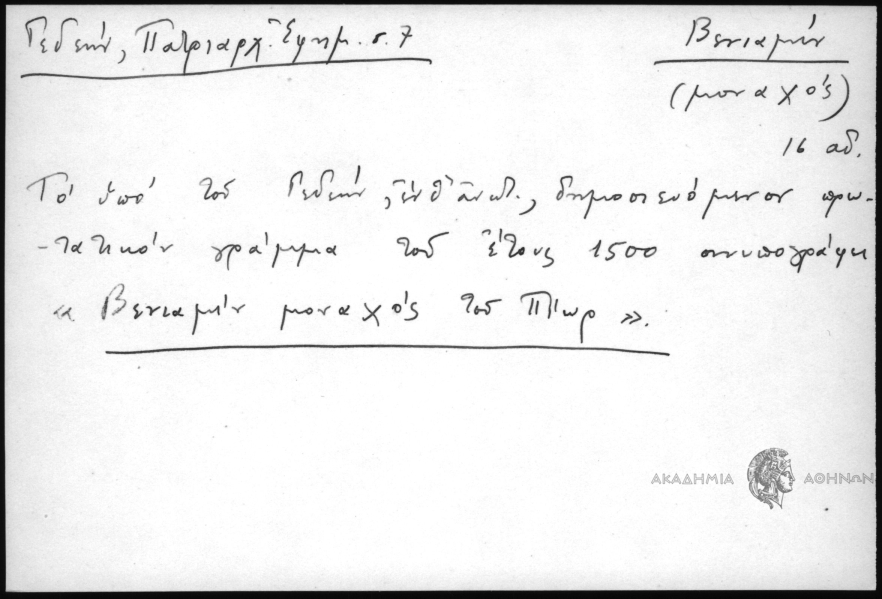 Γεδεών, Πατριαρχ. Ἐφημ. σ. 7
Βενιαμίν
(μοναχός)
16 αἰ.
Τό ὑπό τοῦ Γεδεών, ἔνθ' ἀνωτ., δημοσιευόμενον πρω-
-τατικόν γράμμα τοῦ ἔτους 1500 συνυπογράφει
« Βενιαμίν μοναχός τοῦ Πίωρ ».
ΑΚΑΔΗΜΙΑ ΑΘΗΝΩΝ